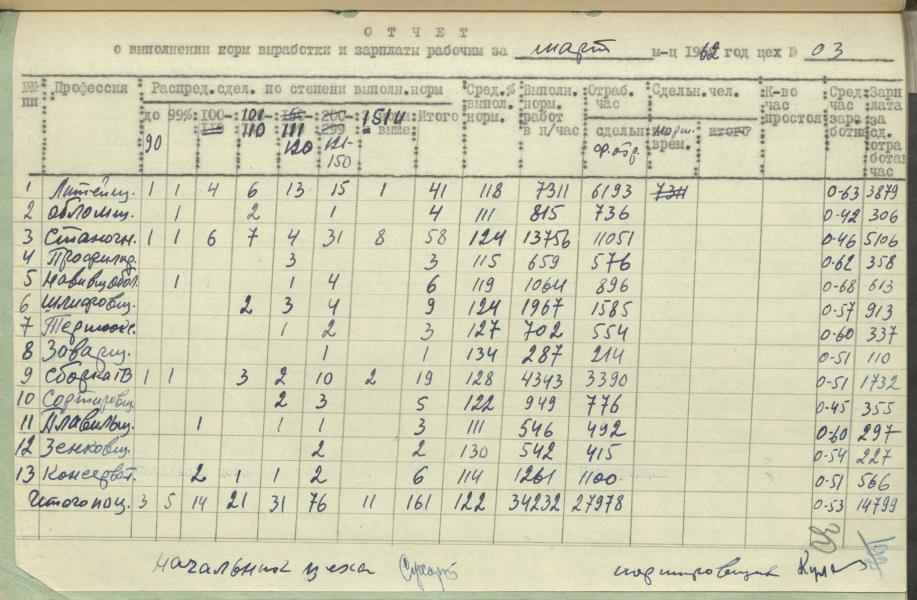 ОТЧЕТ
о выполнении норм выработки и зарплаты рабочим за март м-ц 1962 год цех № 03
№№ пп Профессия Распред.сдел. по степени выполн.норм Сред.% выпол. норм. Выполн. норм. работ в н/час Отраб. час сдельн. Сдельн.чел. К-во час простоя Сред. час зара ботн Зарп лата за сд. отра ботан час
до 90 99% 100- 101-110 111 120 200-299 121-150 151 и выше Итого ср.отр. норм. врем. итого
1 Литейщ. 1 1 4 6 13 15 1 41 118 7311 6193 7311 0-63 3879
2 Обломщ. 1 2 1 4 111 815 736 0-42 306
3 Станочн. 1 1 6 7 4 31 8 58 124 13756 11051 0-46 5106
4 3 3 115 659 576 0-62 358
5 1 1 4 6 119 1064 896 0-68 613
6 Шлифовщ. 2 3 4 9 124 1967 1585 0-57 913
7 1 2 3 127 702 554 0-60 337
8 1 1 134 287 214 0-51 110
9 1 1 3 2 10 2 19 128 4343 3390 0-51 1732
10 Сортировщ. 2 3 5 122 949 776 0-45 355
11 Плавильщ. 1 1 1 3 111 546 492 0-60 297
12 Зенковщ. 2 2 130 542 415 0-54 227
13 Консерват. 2 1 1 2 6 114 1261 1100 0-51 566
Итого по ц. 3 5 14 21 31 76 11 161 122 34232 27978 0-53 14799
Начальник цеха нормировщик